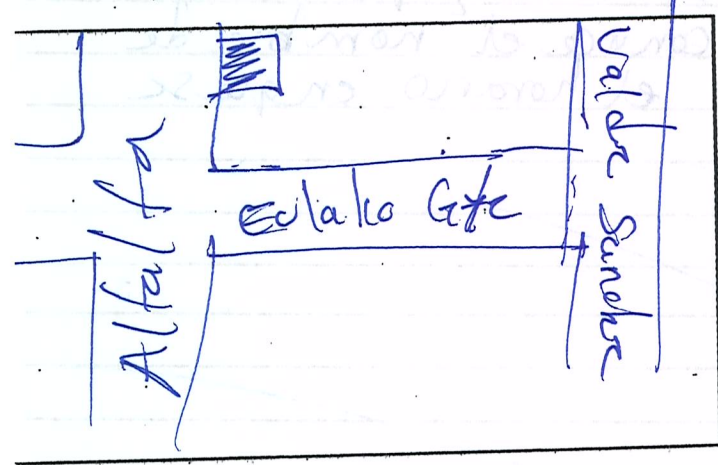 Alfalfa
Eulalio Gtz
Valdez Sanchez